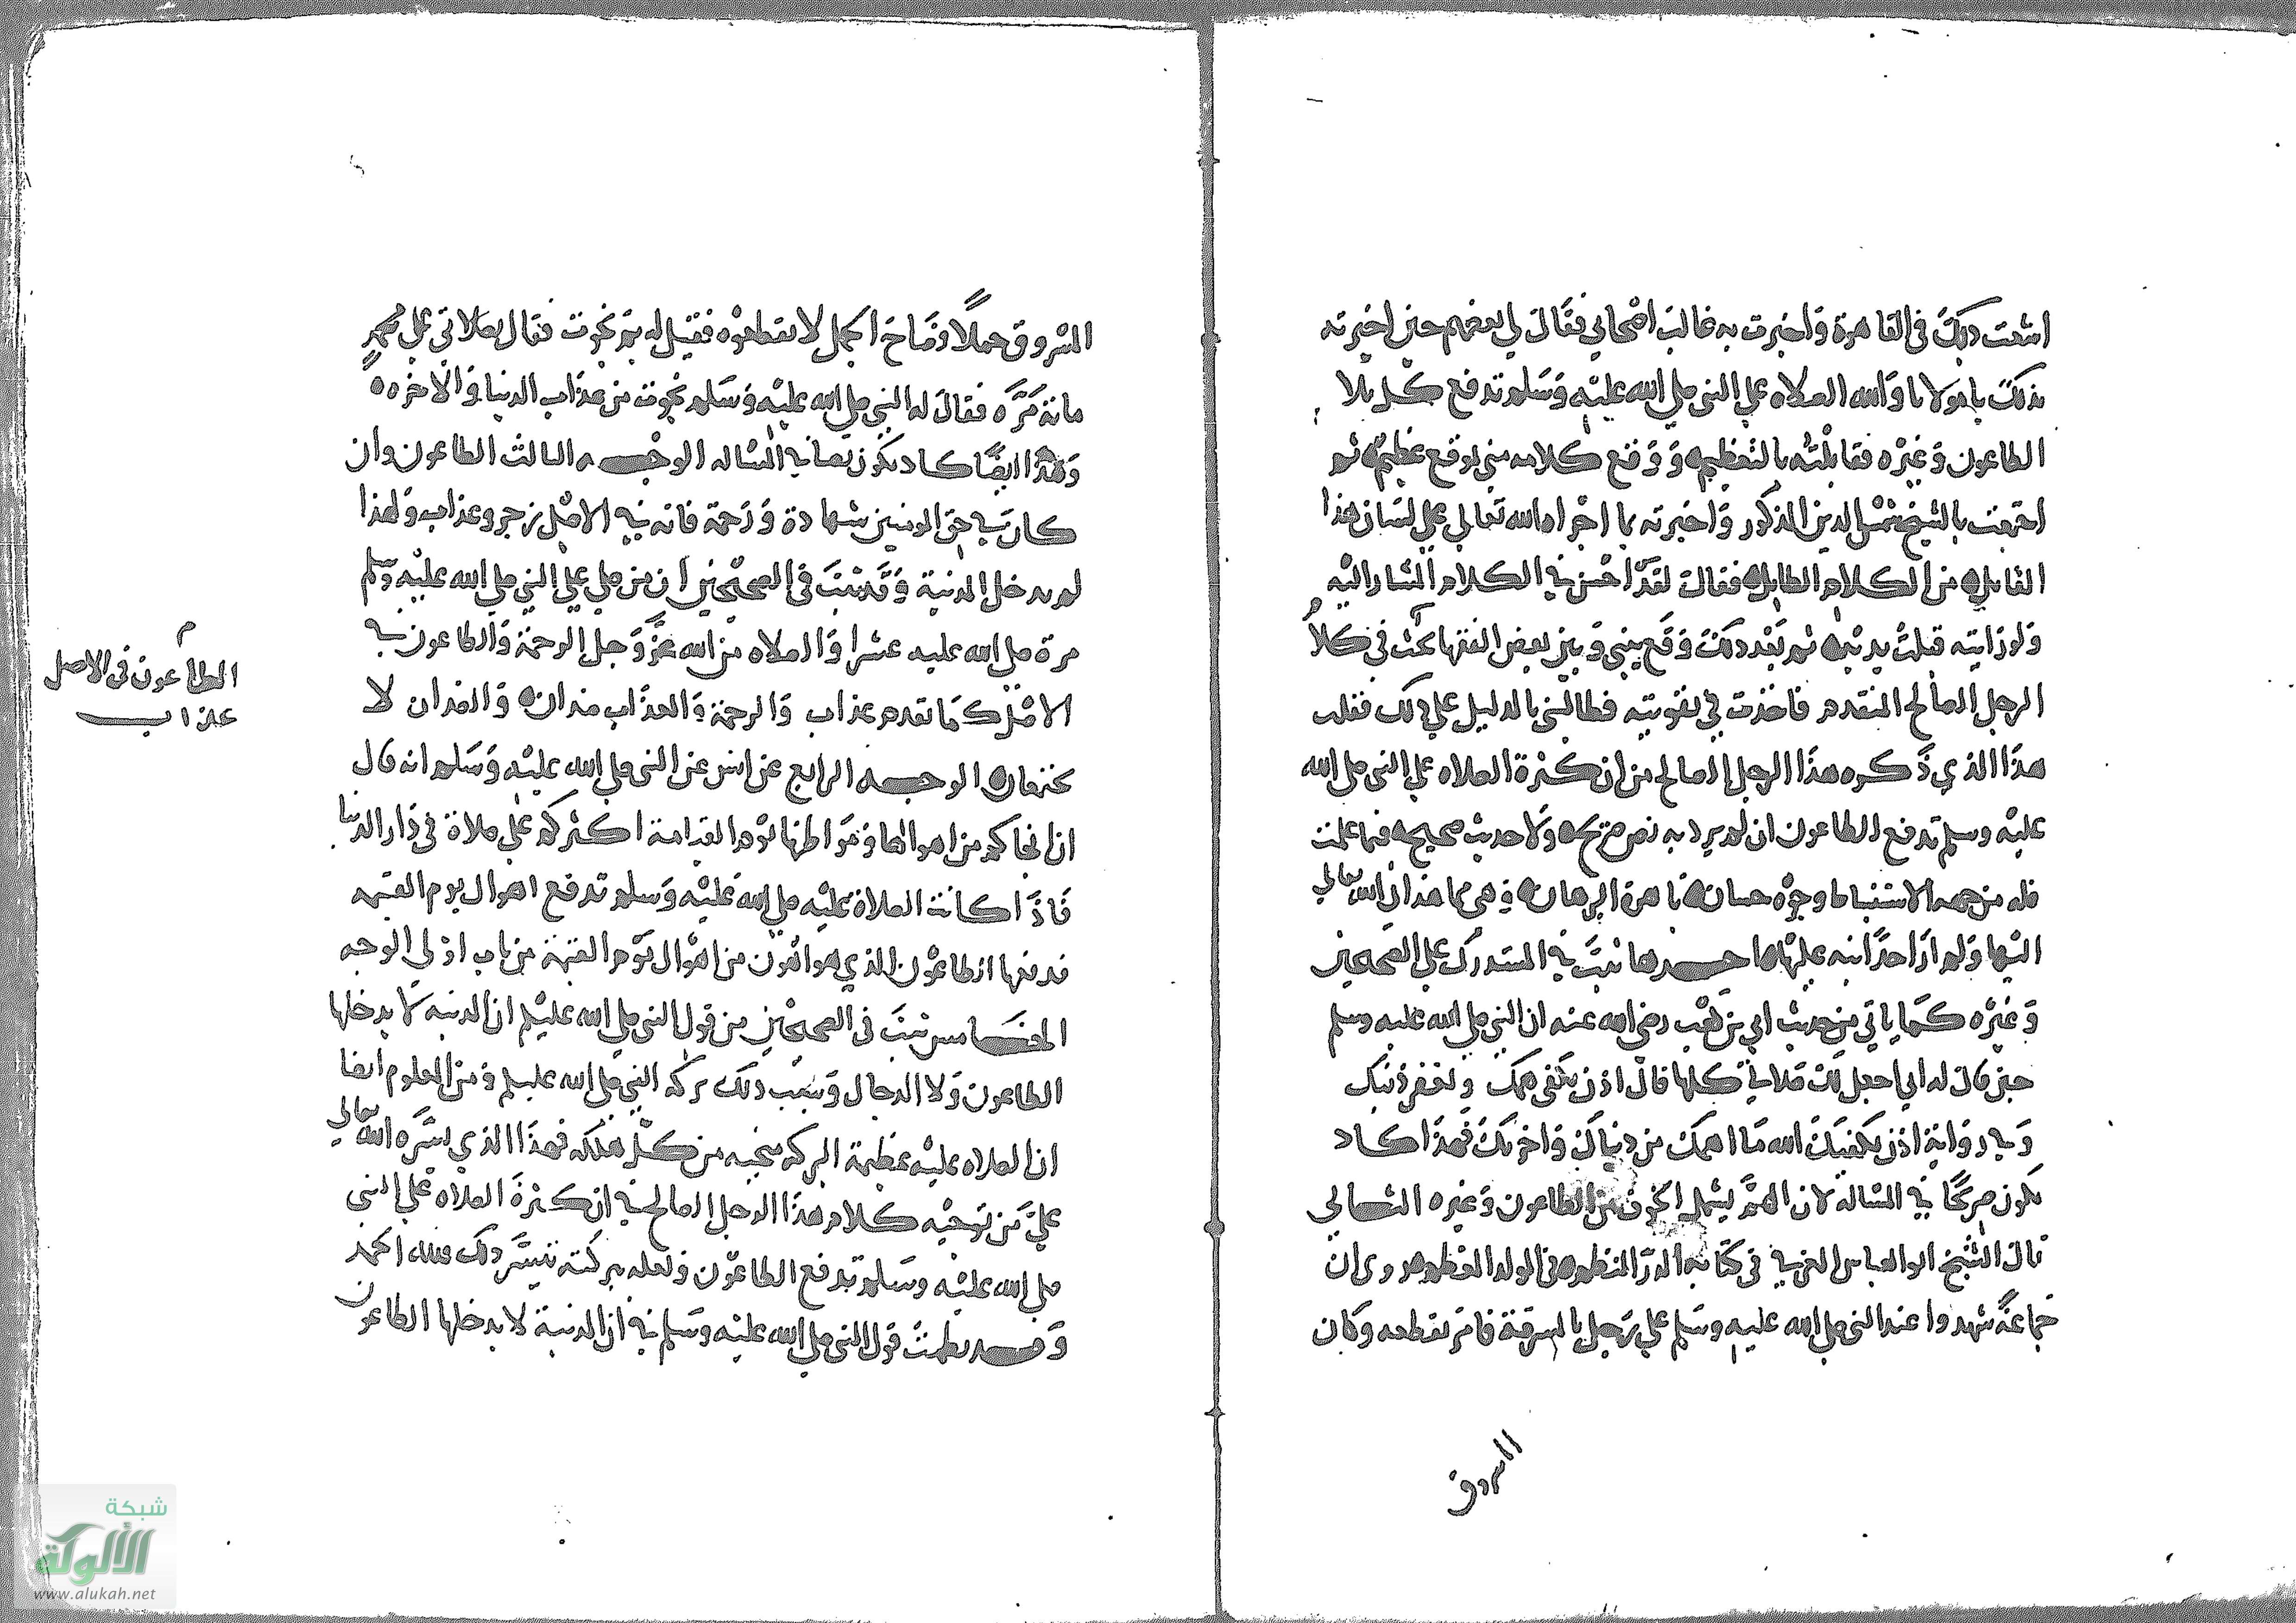 اشعت ذلك في القاهرة واخبرت به غالب اصحابي فقال لي بعضهم حين اخبرته
بذلك يا مولانا والله الصلاه على النبي صلى الله عليه وسلم تدفع كل بلا
الطاعون وغيره فقابلته بالتعظيم ووقع كلامه مني بموقع عظيم ثم
اجتمعت بالشيخ شمس الدين المذكور واخبرته بما اجراه الله تعالى على لسان هذا
القايل من الكلام الطايل فقال لقد احسن في الكلام المشار اليه
ولو رايته قبلت يديه ثم بعد ذلك وقع بيني وبين بعض الفقها بحث في كلام
الرجل الصالح المتقدم فاخذت في تقويته فطالبني بالدليل على ذلك فقلت
هذا الذي ذكره هذا الرجل الصالح من ان كثرة الصلاه على النبي صلى الله
عليه وسلم تدفع الطاعون ان لم يرد به نص صريح ولا حديث صحيح فيما علمت
فله من جهه الاستنباط وجوه حسان باهرة البرهان وهي مما هدانا الله تعالى
اليها ولم ار احدا نبه عليها احدها ثبت في المستدرك على الصحيحين
وغيره كما ياتي من حديث ابي بن كعب رضي الله عنه ان النبي صلى الله عليه وسلم
حين قال له ابي اجعل لك صلاتي كلها قال اذن يكفى همك ويغفر ذنبك
وفي رواية اذن يكفيك الله ما اهمك من دنياك واخرتك فهذا كاد
يكون صريحا في المسالة لان الهم يشمل الخوف من الطاعون وغيره الثاني
قال الشيخ ابو العباس العزفي في كتابه الدر المنظم في المولد المعظم روى ان
جماعة شهدوا عند النبي صلى الله عليه وسلم على رجل بالسرقة فامر بقطعه وكان
المسروق
المسروق جملا فصاح الجمل لا تقطعوه فقيل له بم نجوت فقال بصلاتي على محمد
مائة مرة فقال له النبي صلى الله عليه وسلم نجوت من عذاب الدنيا والاخره
وهذا ايضا كاد يكون نصا في المساله الوجه الثالث الطاعون وان
كان في حق المومنين شهادة ورحمة فانه في الاصل رجز وعذاب ولهذا
لم يدخل المدينة وقد ثبت في الصحيحين ان من صلى على النبي صلى الله عليه وسلم
مرة صلى الله عليه عشرا والصلاه من الله عز وجل الرحمة والطاعون في
الاصل كما تقدم عذاب والرحمة والعذاب ضدان والضدان لا
يجتمعان الوجه الرابع عن انس عن النبي صلى الله عليه وسلم انه قال
ان انجاكم من اهوالها ومواطنها يوم القيامة اكثركم على صلاة في دار الدنيا
فاذا كانت الصلاة عليه صلى الله عليه وسلم تدفع اهوال يوم القيمه
فدفعها الطاعون الذي هو اهون من اهوال يوم القيمة من باب اولى الوجه
الخامس ثبت في الصحيحين من قول النبي صلى الله عليه وسلم ان المدينه لا يدخلها
الطاعون ولا الدجال وسبب ذلك بركة النبي صلى الله عليه وسلم ومن المعلوم ايضا
ان الصلاه عليه عظيمة البركه منجيه من كل هلكه فهذا الذي يسره الله تعالى
علي من توجيه كلام هذا الرجل الصالح في ان كثرة الصلاه على النبي
صلى الله عليه وسلم تدفع الطاعون ولعله ببركته تيسر ذلك فلله الحمد
وقد نظمت قول النبي صلى الله عليه وسلم في ان المدينة لا يدخلها الطاعون
الطاعون في الاصل
عذاب
شبكة
الألوكة
www.alukah.net